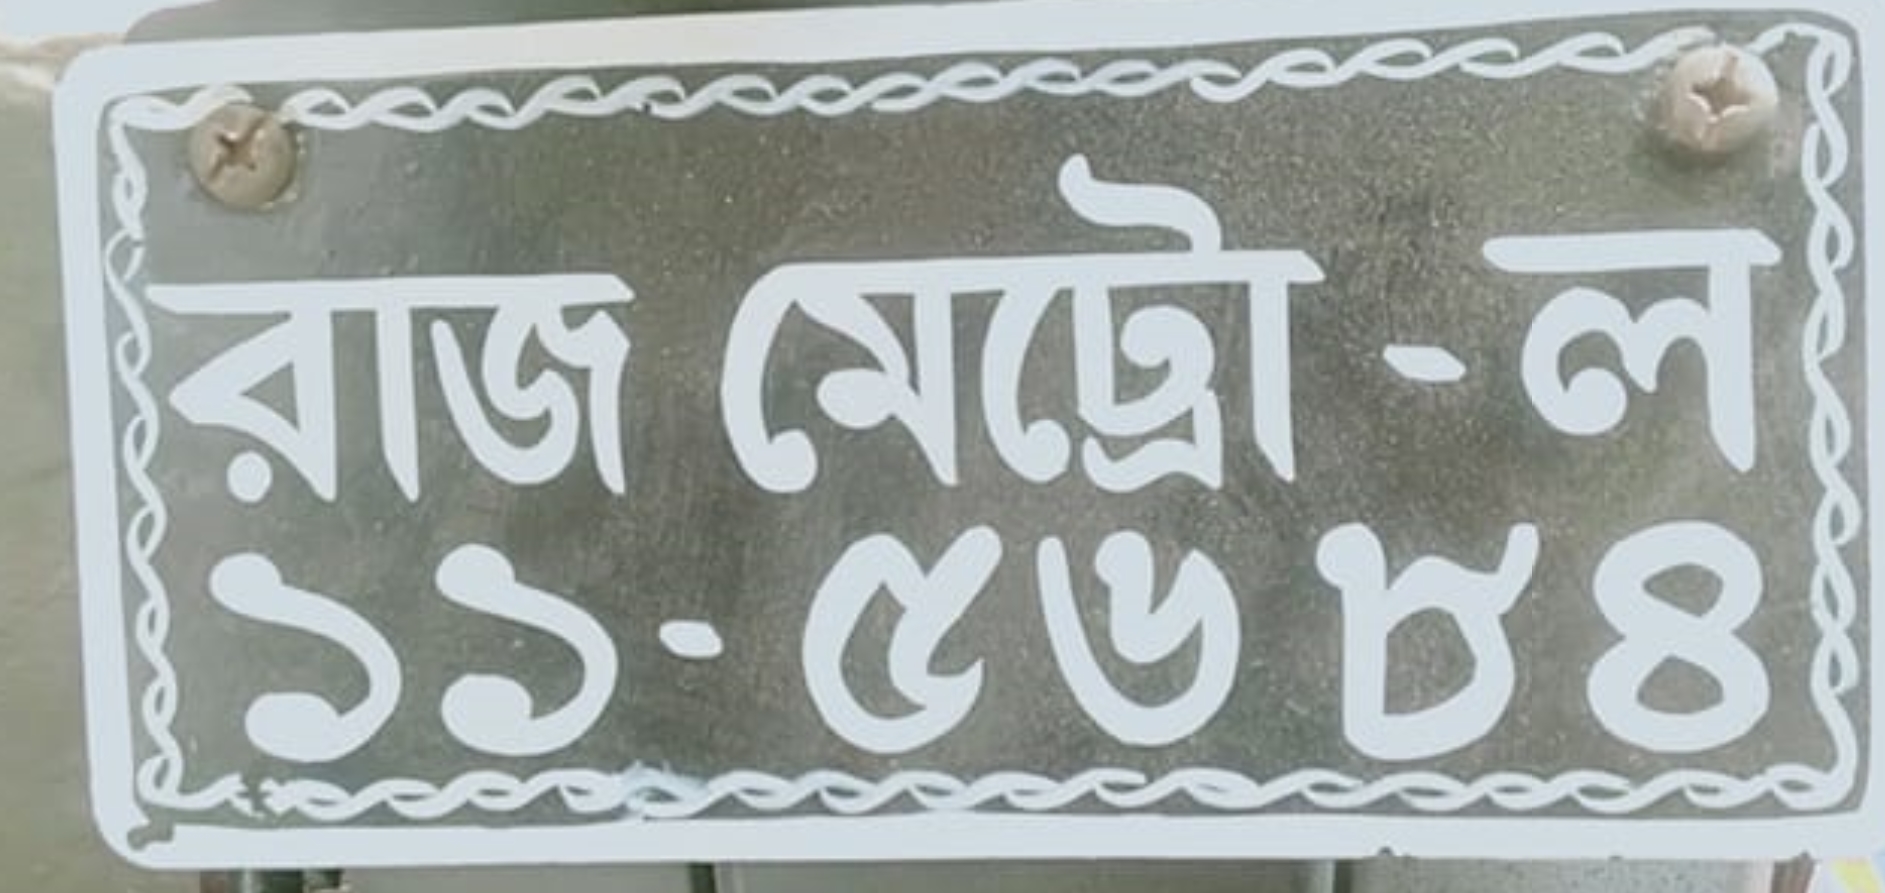 রাজ মেট্রো - ল
১১-৫৬৮৪